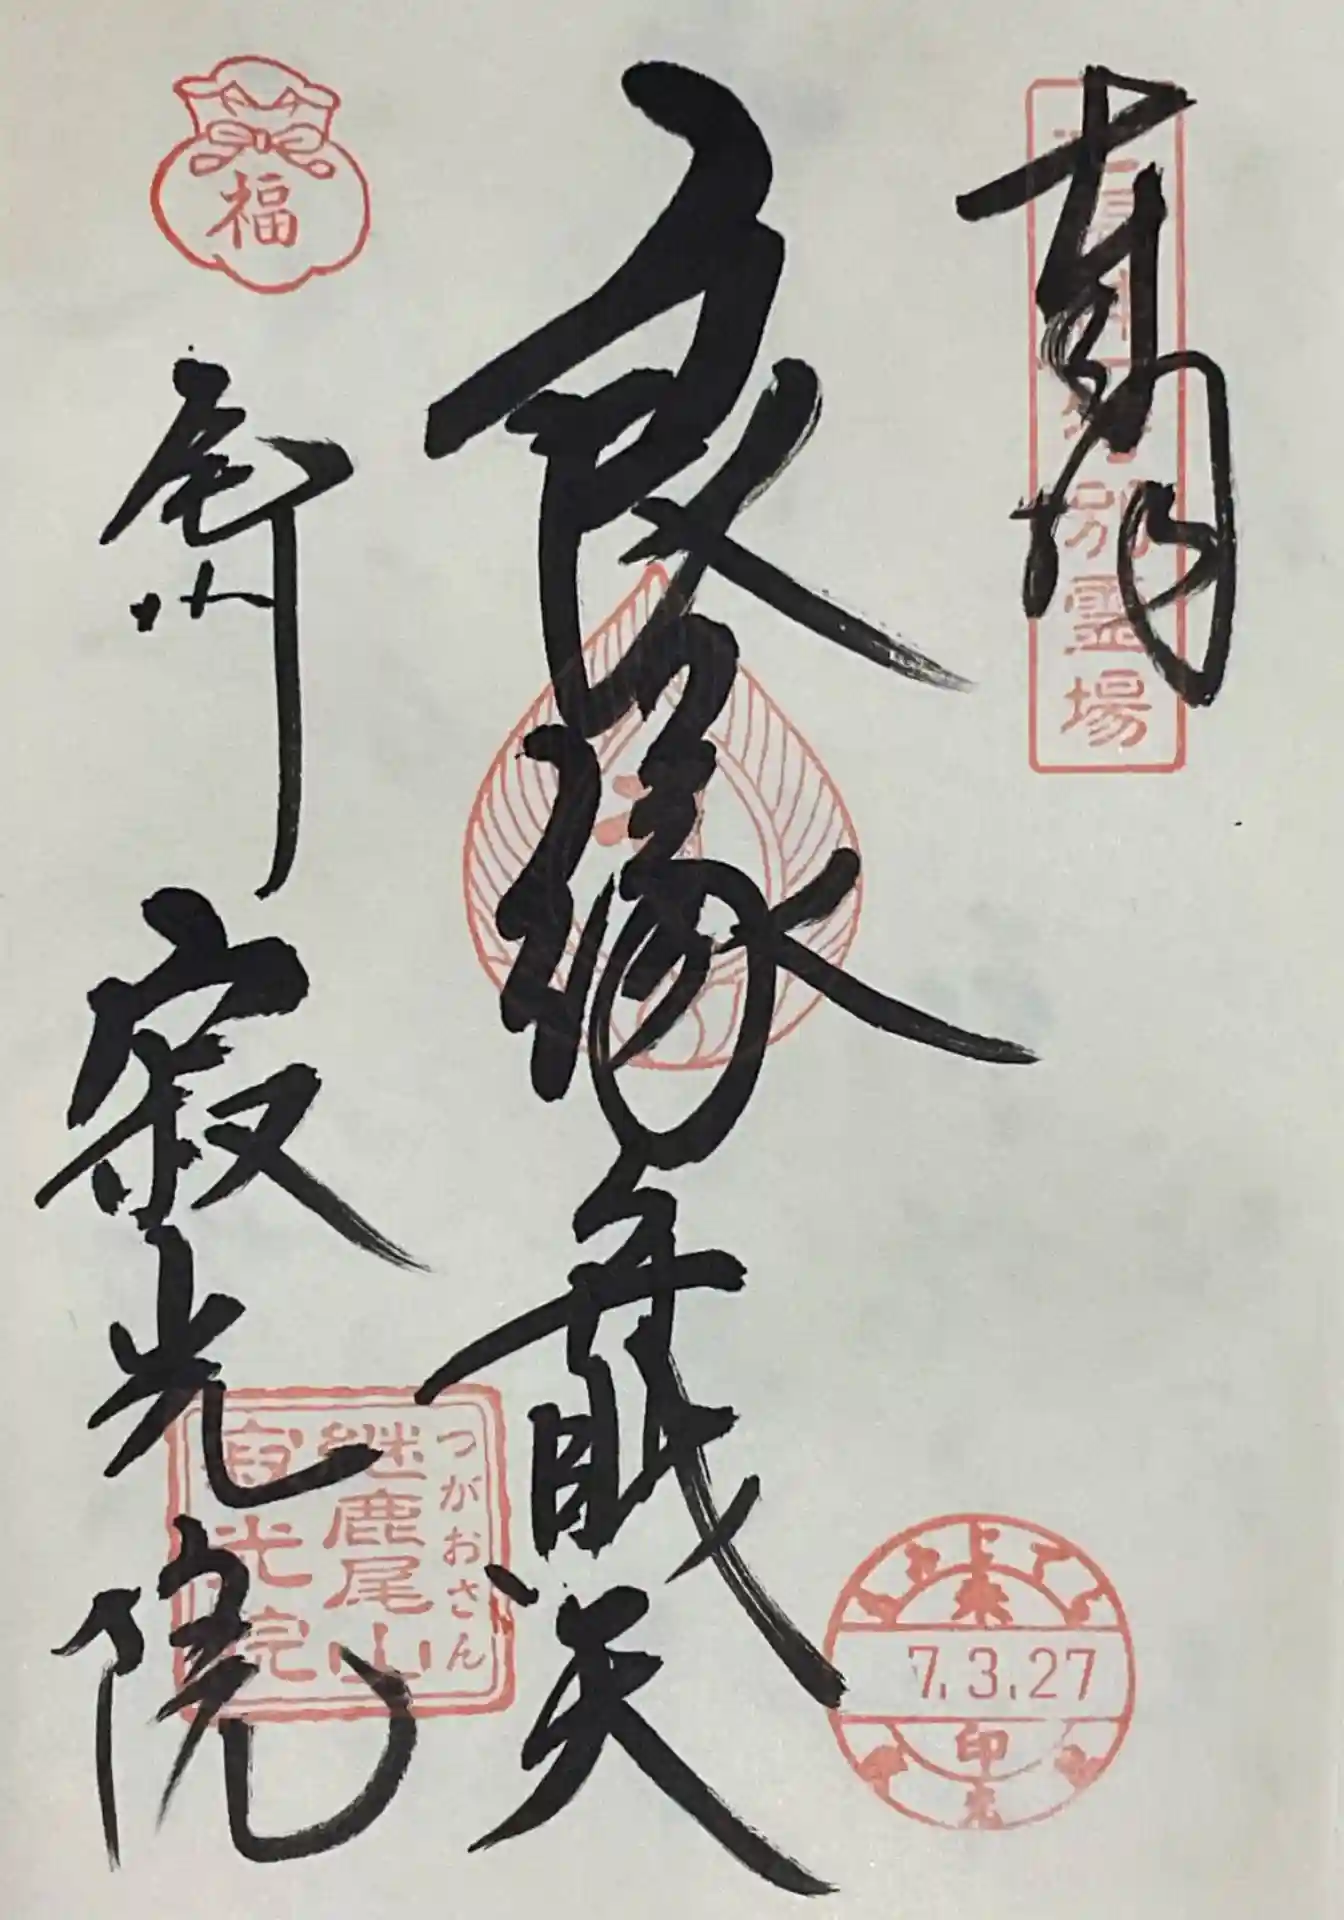 奉拝
別霊場
良縁弁財天
福
尾州 寂光院
つがおさん
継鹿尾山
寂光院
7.3.27
印